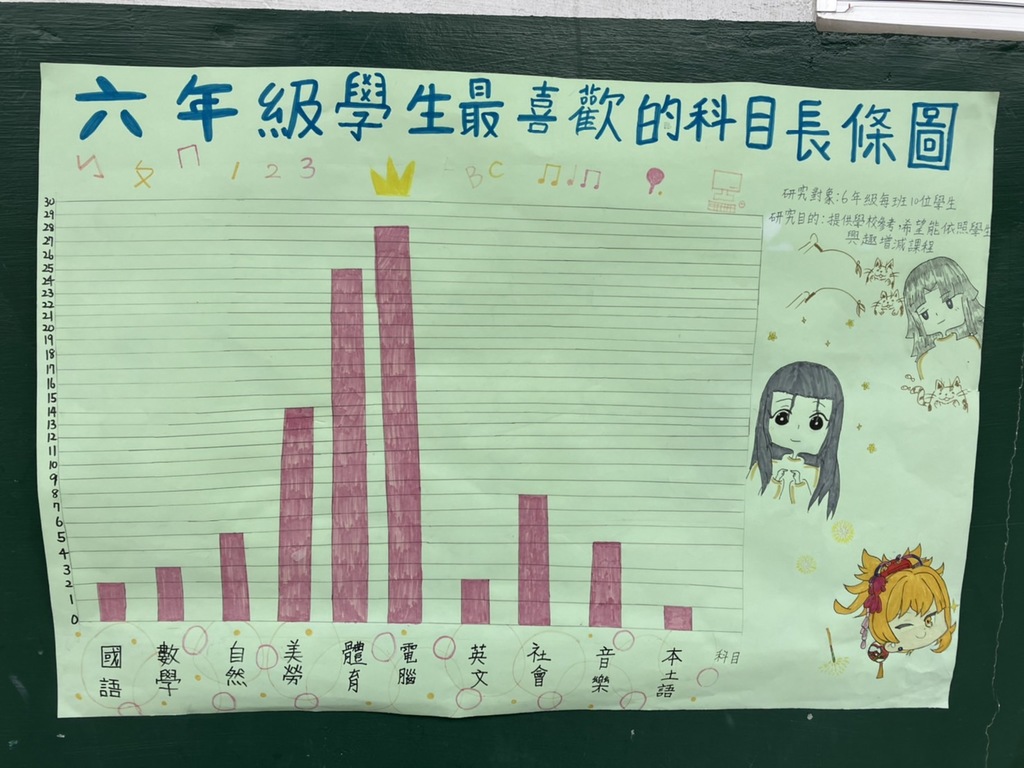 六年級學生最喜歡的科目長條圖
ㄅ ㄆ ㄇ 1 2 3 BC
研究對象:6年級每班10位學生
研究目的:提供學校參考,希望能依照學生
興趣增減課程
30
29
28
27
26
25
24
23
22
21
20
19
18
17
16
15
14
13
12
11
10
9
8
7
6
5
4
3
2
1
0
國語 數學 自然 美勞 體育 電腦 英文 社會 音樂 本土語 科目